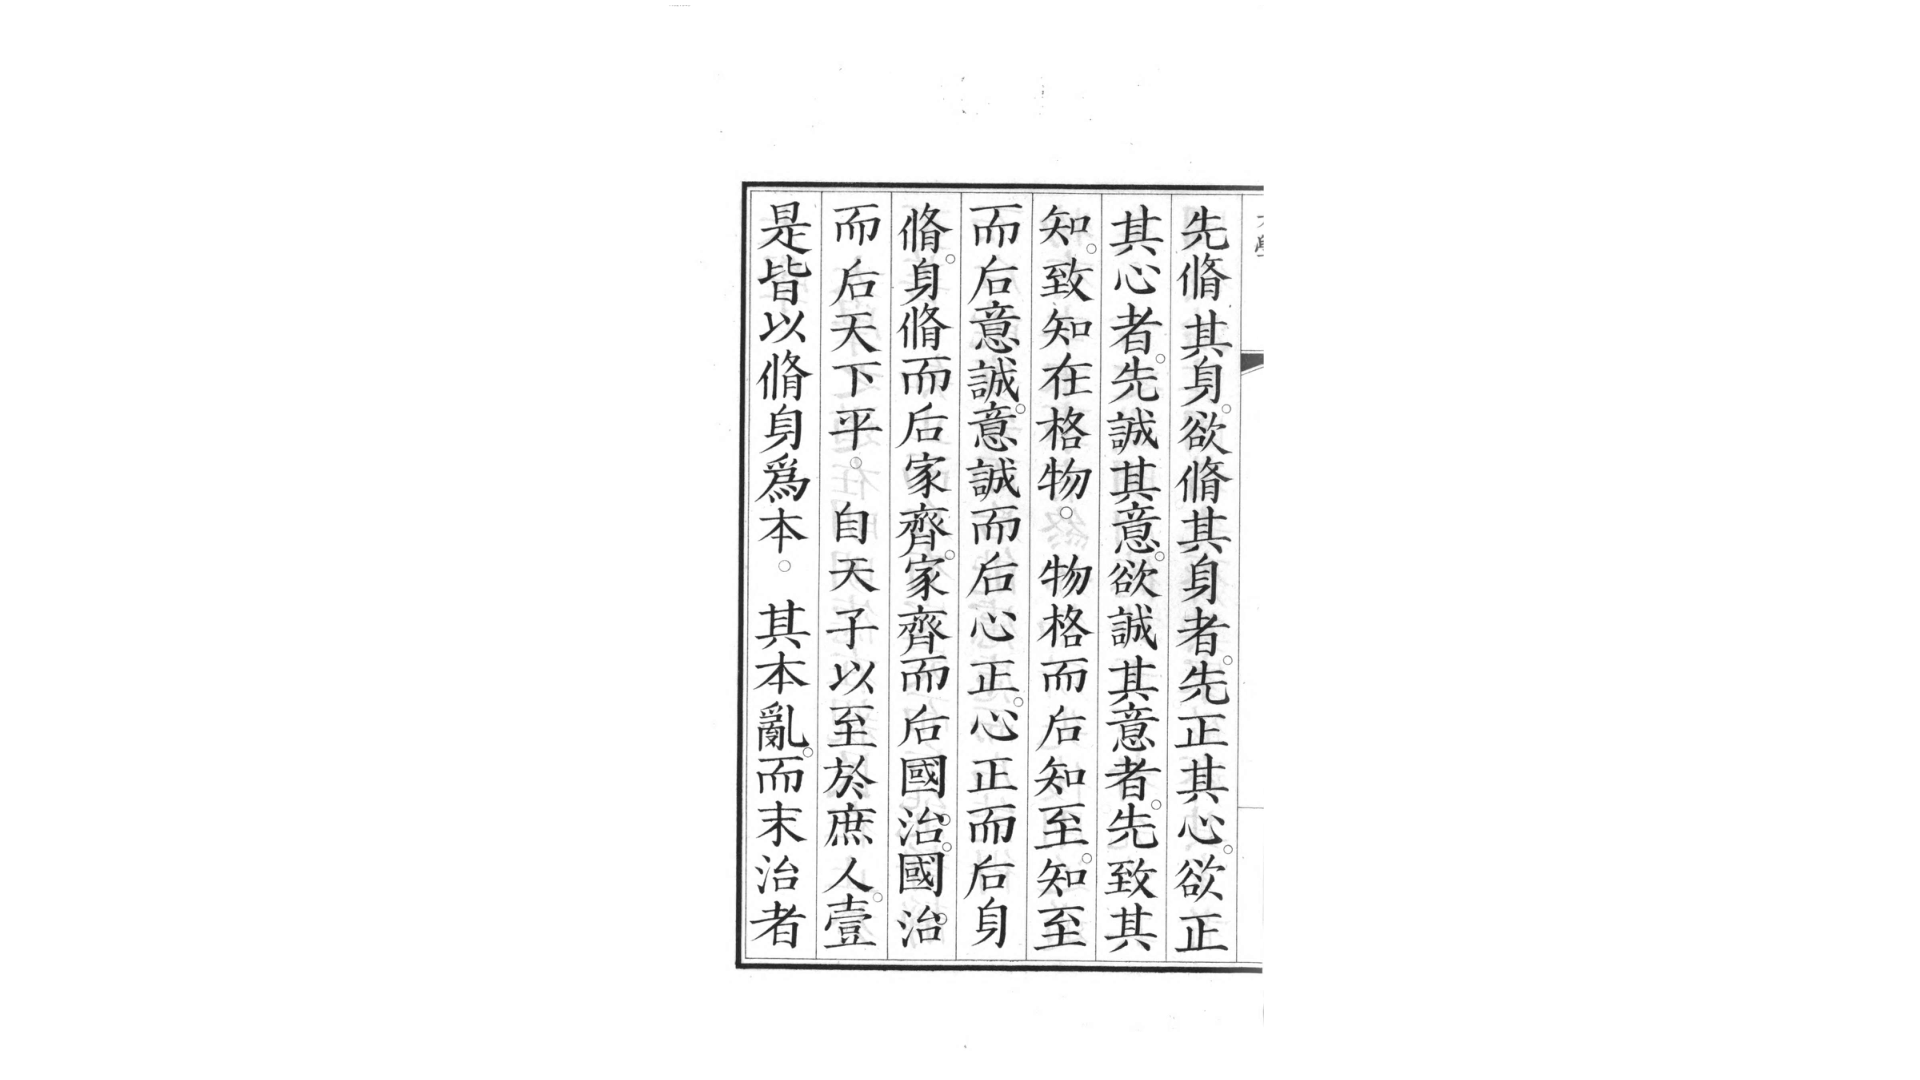 先脩其身。欲脩其身者。先正其心。欲正
其心者。先誠其意。欲誠其意者。先致其
知。致知在格物。物格而后知至。知至
而后意誠。意誠而后心正。心正而后身
脩。身脩而后家齊。家齊而后國治。國治
而后天下平。自天子以至於庶人。壹
是皆以脩身為本。其本亂。而末治者